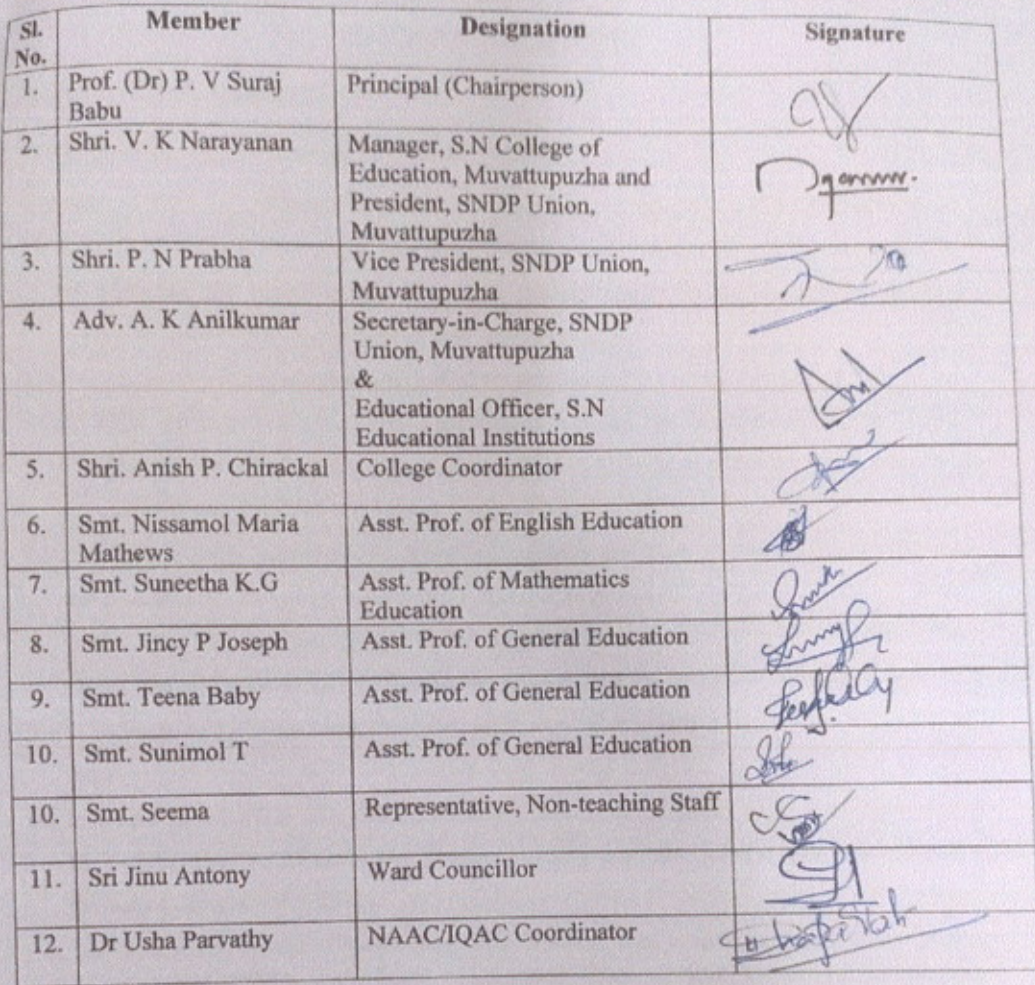 Sl. No. Member Designation Signature
1. Prof. (Dr) P. V Suraj Babu Principal (Chairperson)
2. Shri. V. K Narayanan Manager, S.N College of
Education, Muvattupuzha and
President, SNDP Union,
Muvattupuzha
3. Shri. P. N Prabha Vice President, SNDP Union,
Muvattupuzha
4. Adv. A. K Anilkumar Secretary-in-Charge, SNDP
Union, Muvattupuzha
&
Educational Officer, S.N
Educational Institutions
5. Shri. Anish P. Chirackal College Coordinator
6. Smt. Nissamol Maria Mathews Asst. Prof. of English Education
7. Smt. Suneetha K.G Asst. Prof. of Mathematics
Education
8. Smt. Jincy P Joseph Asst. Prof. of General Education
9. Smt. Teena Baby Asst. Prof. of General Education
10. Smt. Sunimol T Asst. Prof. of General Education
10. Smt. Seema Representative, Non-teaching Staff
11. Sri Jinu Antony Ward Councillor
12. Dr Usha Parvathy NAAC/IQAC Coordinator